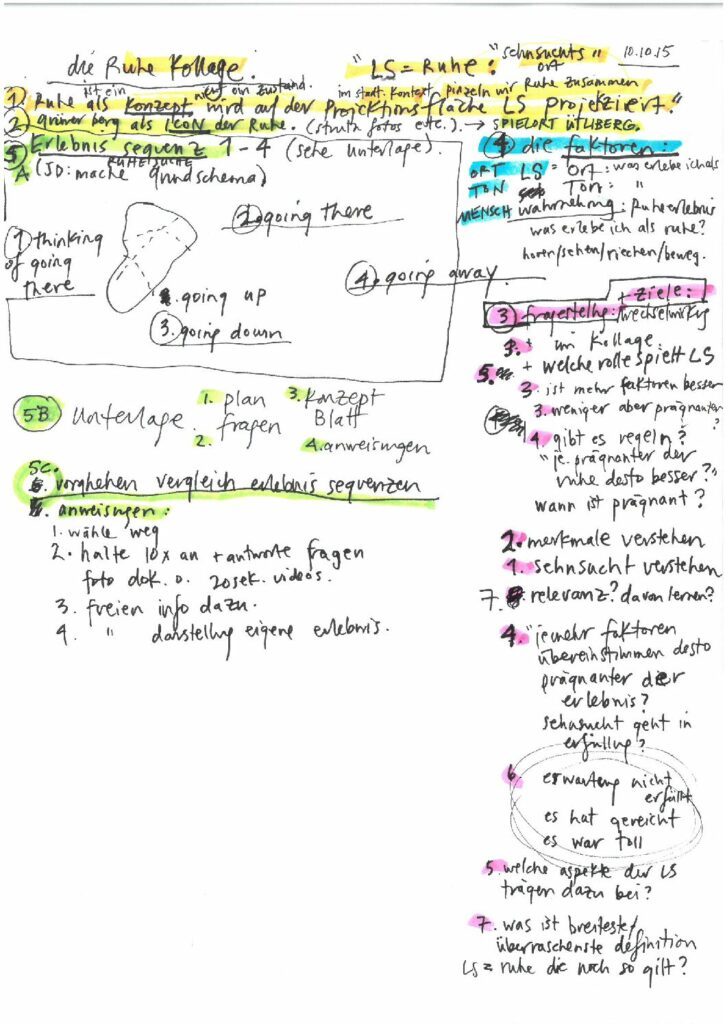 die Ruhe Kollage.
"LS = Ruhe:"
"sehnsuchts"
ort
10.10.15
ist ein
nicht ein zustand.
im stadt. Kontext pinzeln wir Ruhe zusammen
1. Ruhe als Konzept wird auf der Projektionsfläche LS projekziert."
2. grüner berg als ICON der Ruhe. (struth fotos etc.) → SPIELORT ÜTLIBERG.
5 Erlebnis sequenz 1-4 (sehe unterlage).
RUHE
A (JD: mache grundschema)
1 thinking
of going
there
2. going there
4. going away.
going up
3. going down
4 die faktoren:
ORT LS = Ort: was erlebe ich als
TON Ton: "
MENSCH wahrnehmung: Ruhe erlebnis
was erlebe ich als ruhe?
horen/sehen/riechen/beweg.
+ Ziele:
3 fragestellung:
+ im Kollage.
5. + welche rolle spielt LS
3. ist mehr faktoren besser
3. weniger aber prägnanter
?
4. gibt es regeln?
"je prägnanter der
ruhe desto besser?"
wann ist prägnant?
2. merkmale verstehen
1. sehnsucht verstehen
7. relevanz? davon lernen?
4. "je mehr faktoren
übereinstimmen desto
prägnanter der
erlebnis?
sehnsucht geht in
erfüllung?
6. erwartung nicht
erfüllt
es hat gereicht
es war toll
5. welche aspekte der LS
trägen dazu bei?
7. was ist breiteste/
überraschenste definition
LS = ruhe die noch so gilt?
5B Unterlage.
1. plan
2. fragen
3. Konzept
Blatt
4. anweisungen
5C. vorghehen vergleich erlebnis sequenzen
anweisungen:
1. wähle weg
2. halte 10x an + antworte fragen
foto dok. o. 20sek. videos.
3. freien info dazu.
4. " darstellung eigene erlebnis.